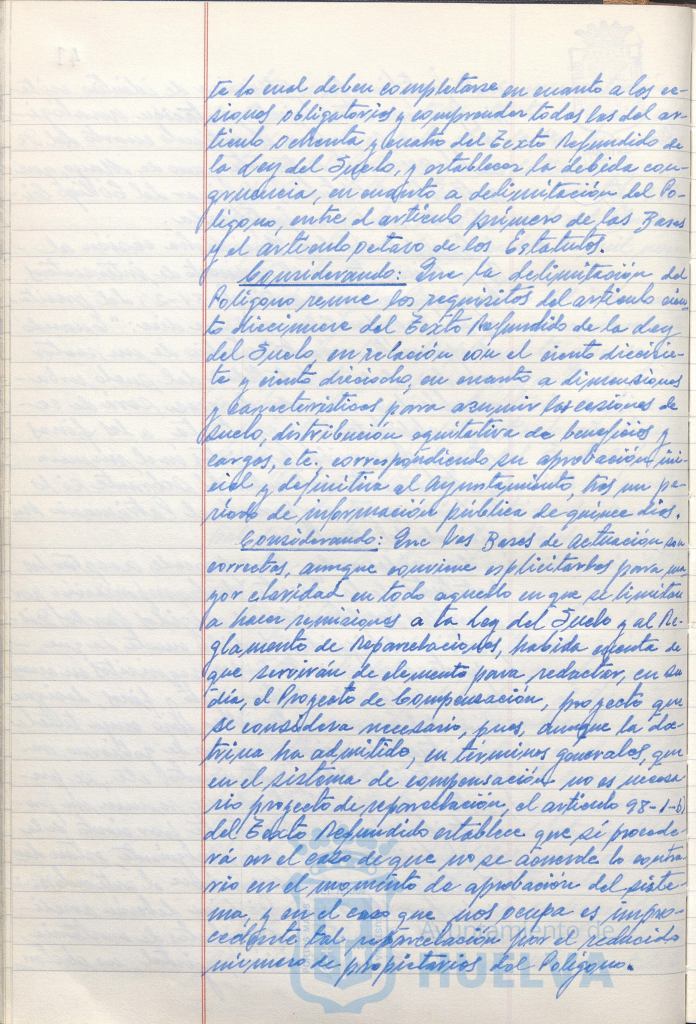 te lo cual deben completarse en cuanto a los ce-
siones obligatorias y comprender todas las del ar-
tículo ochenta y cuatro del Texto Refundido de
la Ley del Suelo, y establecer la debida con-
gruencia, en cuanto a delimitación del Po-
lígono, entre el artículo primero de las Bases
y el artículo octavo de los Estatutos.
Considerando: Que la delimitación del
Polígono reune los requisitos del artículo cien-
to diecinueve del Texto Refundido de la Ley
del Suelo, en relación con el ciento diecisie-
te y ciento dieciocho, en cuanto a dimensiones
y características para asumir las cesiones de
suelo, distribución equitativa de beneficios y
cargas, etc. correspondiendo su aprobación ini-
cial y definitiva al Ayuntamiento, tras un pe-
ríodo de información pública de quince días.
Considerando: Que las Bases de Actuación son
correctas, aunque conviene explicitarlas para ma-
yor claridad en todo aquello en que se limitan
a hacer remisiones a la Ley del Suelo y al Re-
glamento de Reparcelaciones, habida cuenta de
que servirán de elemento para redactar, en su
día, el Proyecto de Compensación, proyecto que
se considera necesario, pues, aunque la doc-
trina ha admitido, en términos generales, que
en el sistema de compensación no es necesa-
rio proyecto de reparcelación, el artículo 98-1-b)
del Texto Refundido establece que sí procede-
rá en el caso de que no se acuerde lo contra-
rio en el momento de aprobación del siste-
ma, y en el caso que nos ocupa es impro-
cedente tal reparcelación por el reducido
número de propietarios del Polígono.
Ayuntamiento de
HUELVA